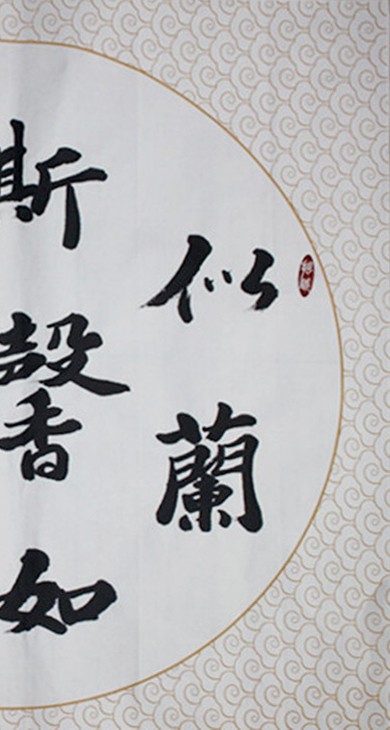 似蘭
斯馨如